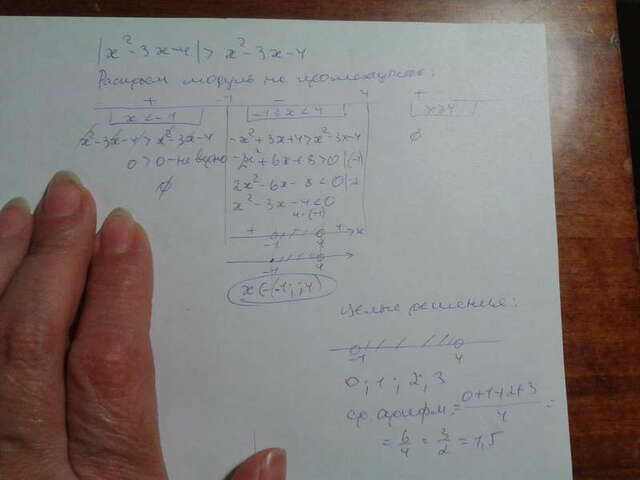 |x²-3x-4| > x²-3x-4
Раскроем модуль на промежутках:
+ -1 - 4 +
x<-1
-1≤x<4
x≥4
x²-3x-4>x²-3x-4
0>0-неверно
∅
-x²+3x+4>x²-3x-4
-2x²+6x+8>0 |(-1)
2x²-6x-8<0 |:2
x²-3x-4<0
4·(-1)
+ + x
-1 4
-1 4
x∈(-1;4)
∅
Целые решения:
-1 4
0; 1; 2; 3
ср. арифм. = (0+1+2+3)/4 =
= 6/4 = 3/2 = 1,5